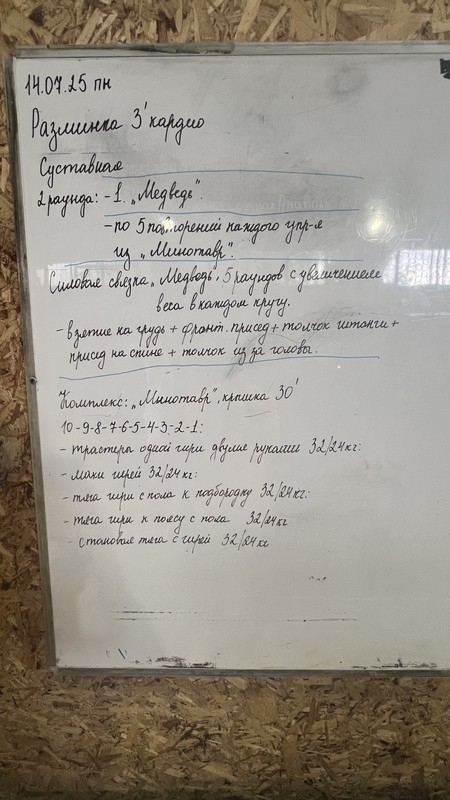 14.07.25 пн
Разминка 3' кардио
Суставная
2 раунда: - 1. „Медведь".
- по 5 повторений каждого упр-я
из „Минотавр".
Силовая связка „Медведь", 5 раундов с увеличением
веса в каждом кругу.
- взятие на грудь + фронт. присед + толчок штанги +
присед на спине + толчок из за головы.
Комплекс: „Минотавр", крышка 30'
10-9-8-7-6-5-4-3-2-1:
- трастеры одной гири двумя руками 32/24кг:
- махи гирей 32/24кг:
- тяга гири с пола к подбородку 32/24кг:
- тяга гири к поясу с пола 32/24кг
- становая тяга с гирей 32/24кг